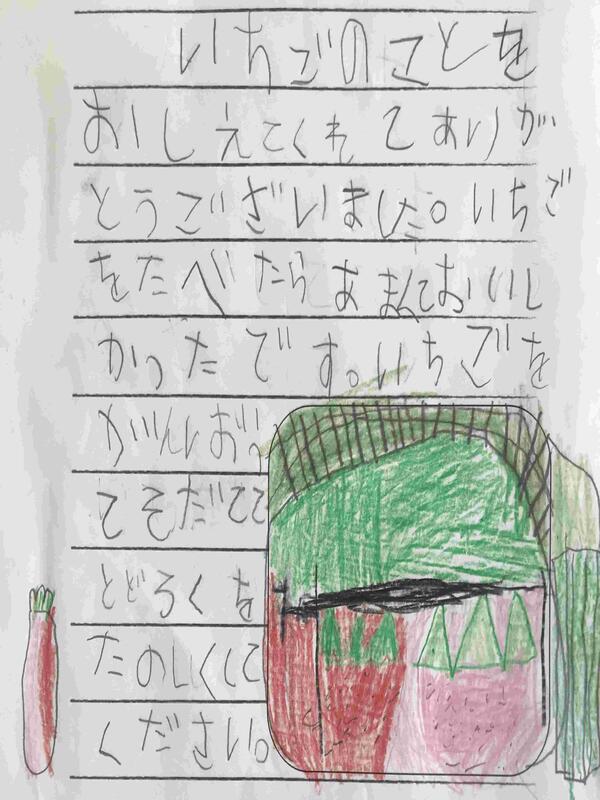 いちごのことを
おしえてくれてありが
とうございました。いちご
をたべたらあまくておいし
かったです。いちごを
がんばっ
てそだてて
とどろくを
たのしくして
ください。